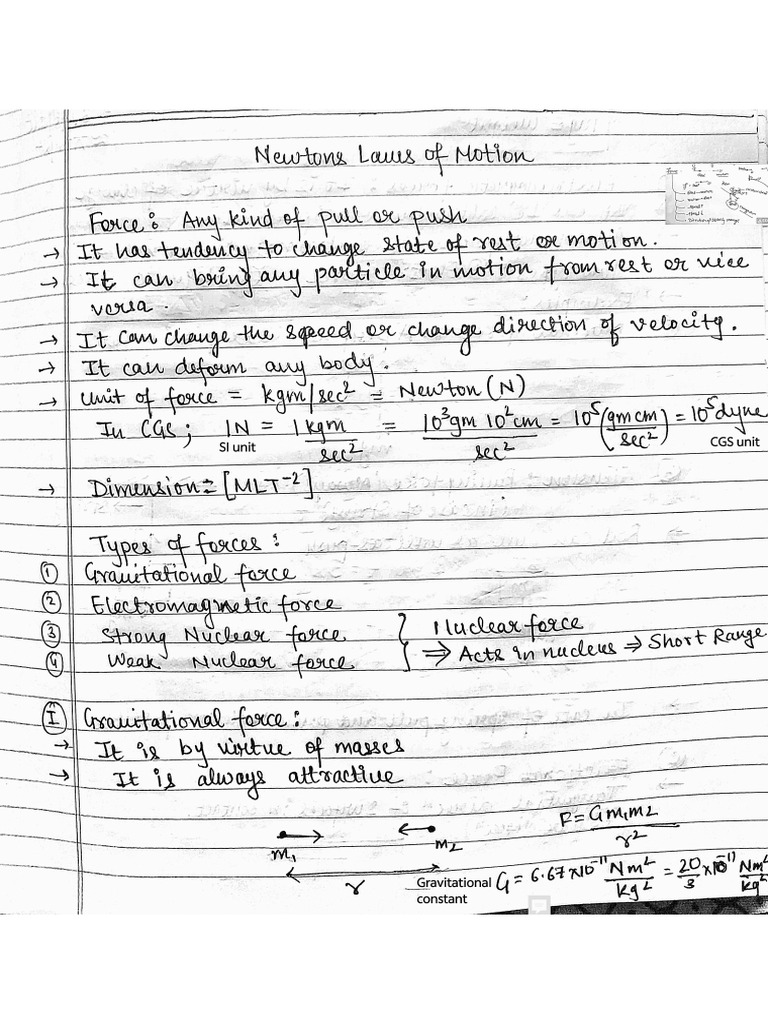 Newtons Laws of Motion
Force: Any kind of pull or push
→ It has tendency to change state of rest or motion.
→ It can bring any particle in motion from rest or vice
versa.
→ It can change the speed or change direction of velocity.
→ It can deform any body.
→ Unit of force = kgm/sec² = Newton (N)
In CGS; 1N = 1kgm/sec² = 10³gm 10²cm/sec² = 10⁵(gmcm/sec²) = 10⁵dyne
SI unit CGS unit
→ Dimension = [MLT⁻²]
Types of forces:
① Gravitational force
② Electromagnetic force
③ Strong Nuclear force } Nuclear force
④ Weak Nuclear force } ⇒ Acts in nucleus ⇒ Short Range
Ⓘ Gravitational force:
→ It is by virtue of masses
→ It is always attractive
m₁ m₂ F = Gm₁m₂/r²
r Gravitational constant G = 6.67×10⁻¹¹ Nm²/kg² = 20/3 ×10⁻¹¹ Nm²/kg²